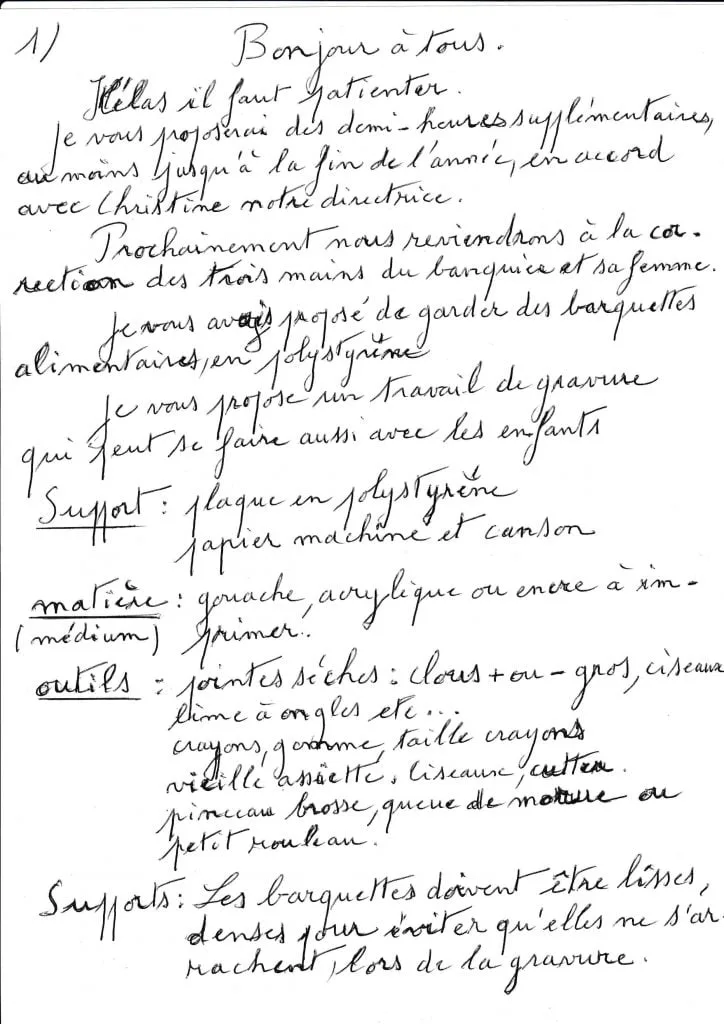 1)
Bonjour à tous.
Hélas il faut patienter.
Je vous proposerai des demi-heures supplémentaires,
au moins jusqu'à la fin de l'année, en accord
avec Christine notre directrice.
Prochainement nous reviendrons à la cor-
rection des trois mains du banquier et sa femme.
Je vous avais proposé de garder des barquettes
alimentaires, en polystyrène
Je vous propose un travail de gravure
qui peut se faire aussi avec les enfants
Support : plaque en polystyrène
papier machine et canson
matière : gouache, acrylique ou encre à im-
(médium) primer.
outils : pointes sèches : clous + ou - gros, ciseaux
lime à ongles etc...
crayons, gomme, taille crayons
vieille assiette. Ciseaux, cutter.
pinceau brosse, queue de morue ou
petit rouleau.
Supports : Les barquettes doivent être lîsses,
denses pour éviter qu'elles ne s'ar-
rachent, lors de la gravure.